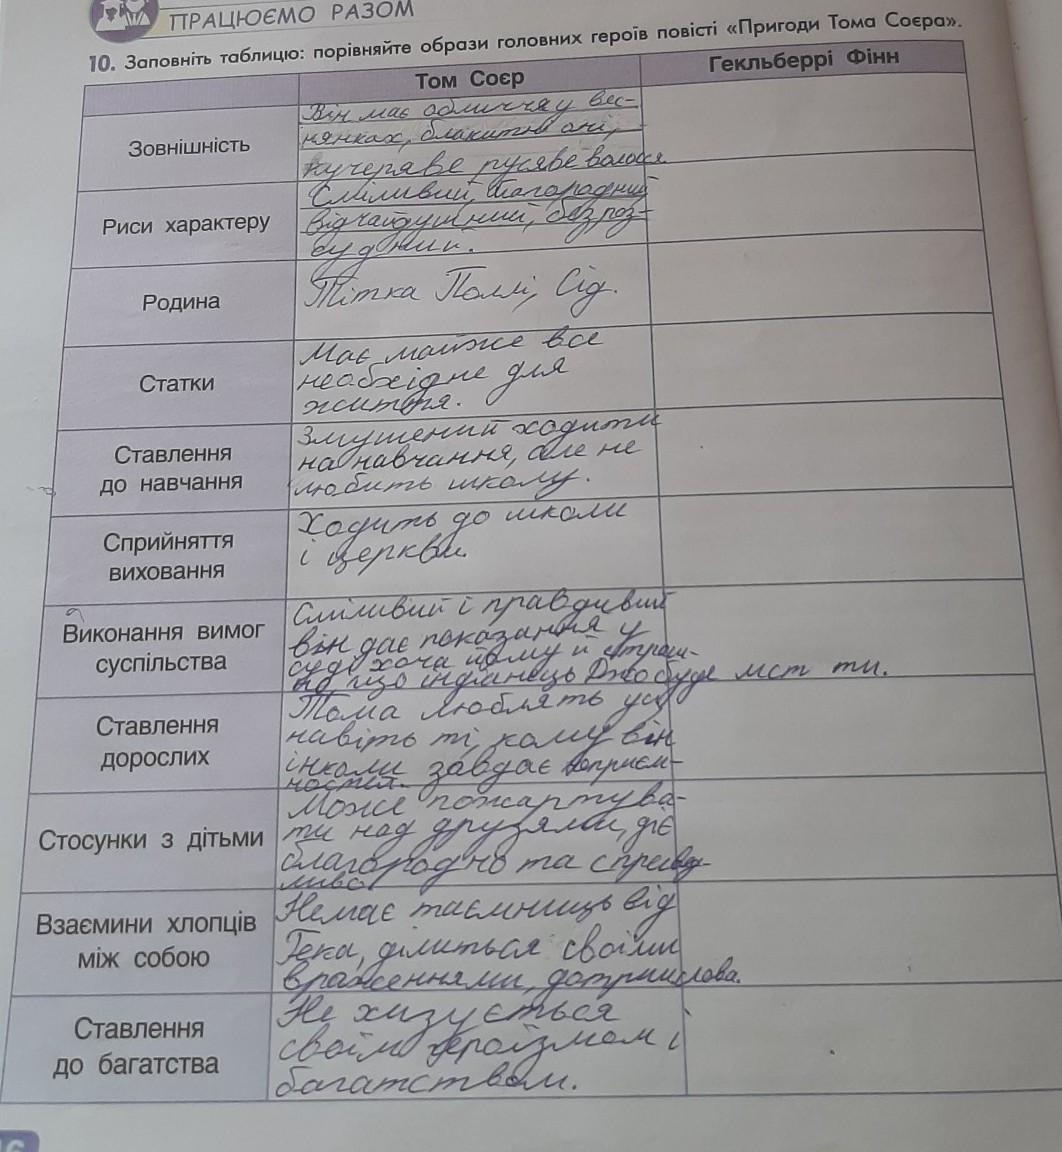 ПРАЦЮЄМО РАЗОМ
10. Заповніть таблицю: порівняйте образи головних героїв повісті «Пригоди Тома Соєра».
Том Соєр
Гекльберрі Фінн
Зовнішність
Він має обличчя у вес-
нянках, блакитні очі,
кучеряве русяве волосся
Риси характеру
Сміливий, благородний
відчайдушний, безроз-
судний.
Родина
Тітка Поллі, Сід.
Статки
Має майже все
необхідне для
життя.
Ставлення
до навчання
Змушений ходити
на навчання, але не
любить школу.
Сприйняття
виховання
Ходить до школи
і церкви.
Виконання вимог
суспільства
Сміливий і правдивий
він дає показання у
суді хоча йому й страш-
но, що індіанець Джо буде мстити.
Ставлення
дорослих
Тома люблять усі
навіть ті, кому він
інколи завдає неприєм-
ностей.
Стосунки з дітьми
Може пожартува-
ти над друзями, діє
благородно та справед-
ливо
Взаємини хлопців
між собою
Немає таємниць від
Гека, ділиться своїми
враженнями, дотрим слова.
Ставлення
до багатства
Не хизується
своїм героїзмом і
багатством.